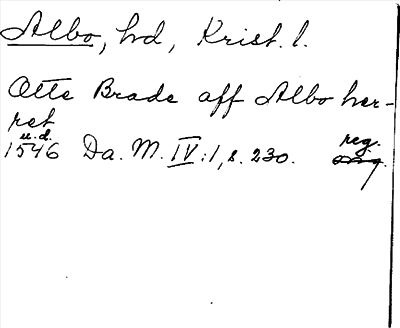 Albo, hd, Krist. l.
Otte Brade aff Albo her-
ret
u.d. reg.
1546 Da. M. IV:1, s. 230.